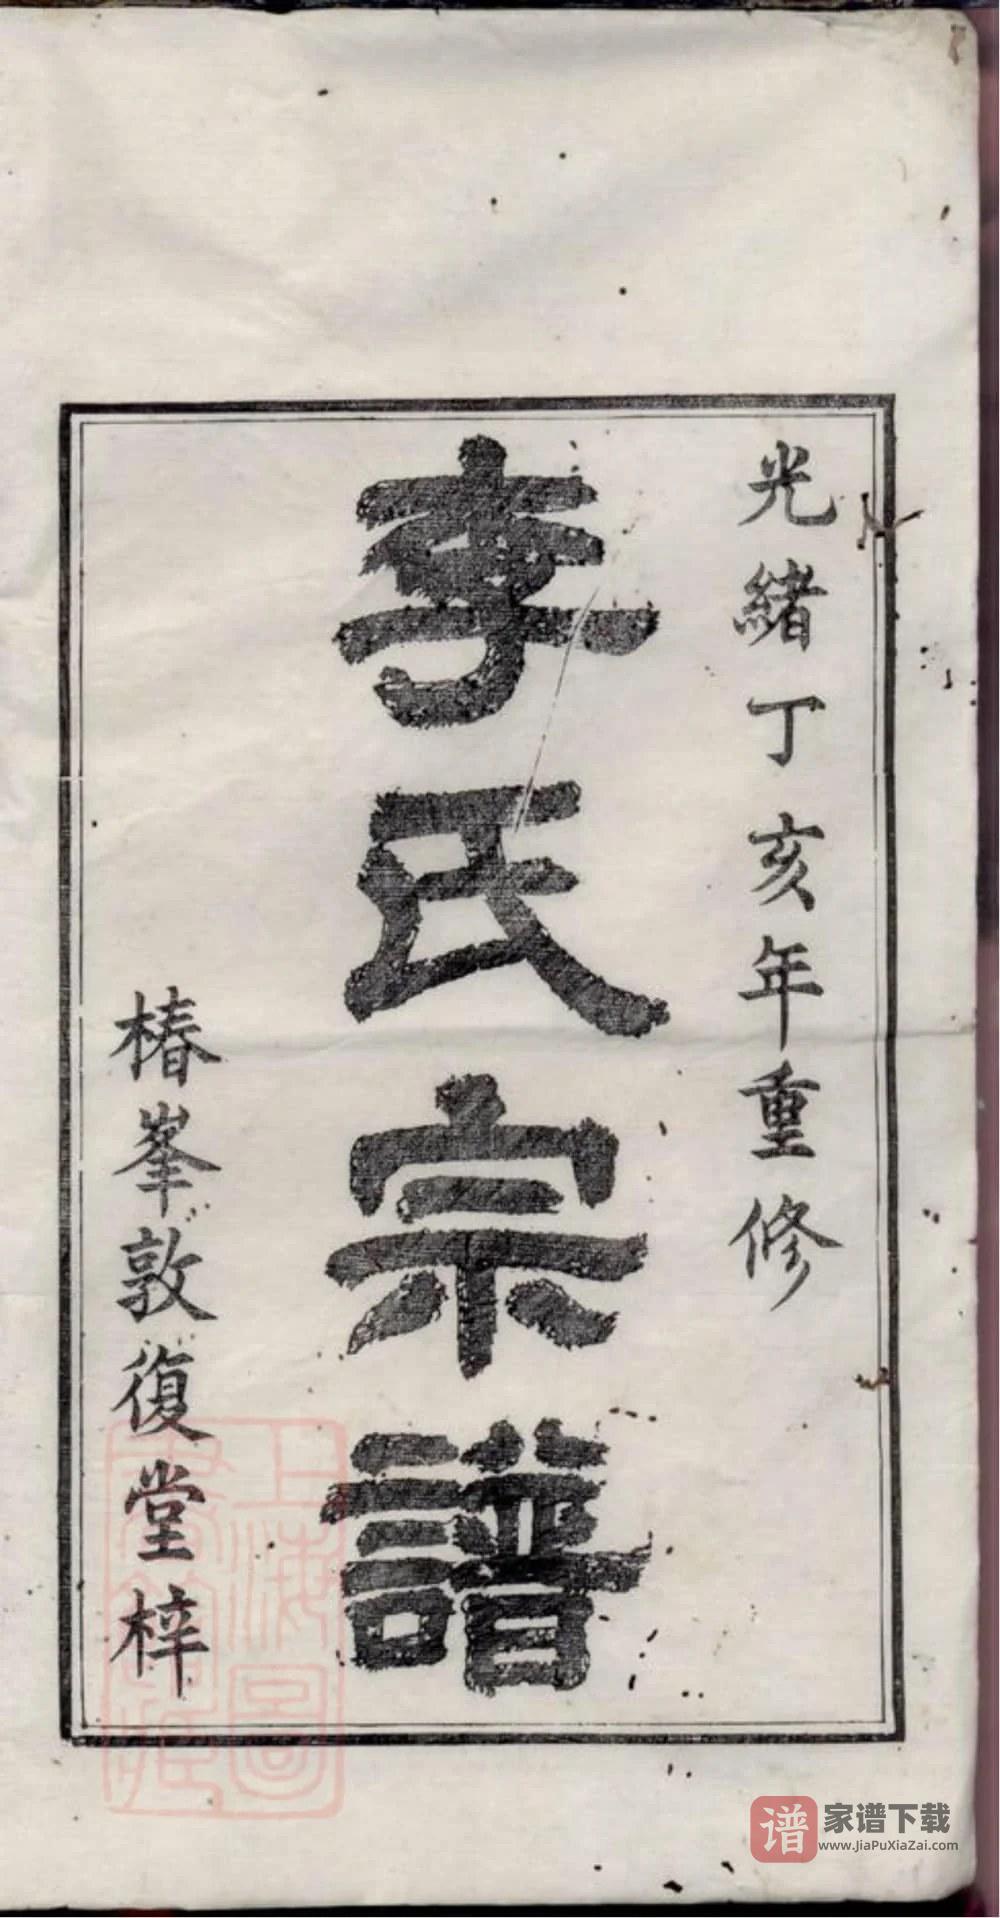 光緒丁亥年重修
李氏宗譜
椿峯敦復堂梓
上海圖書館藏
谱 家谱下载
www.JiaPuXiaZai.com